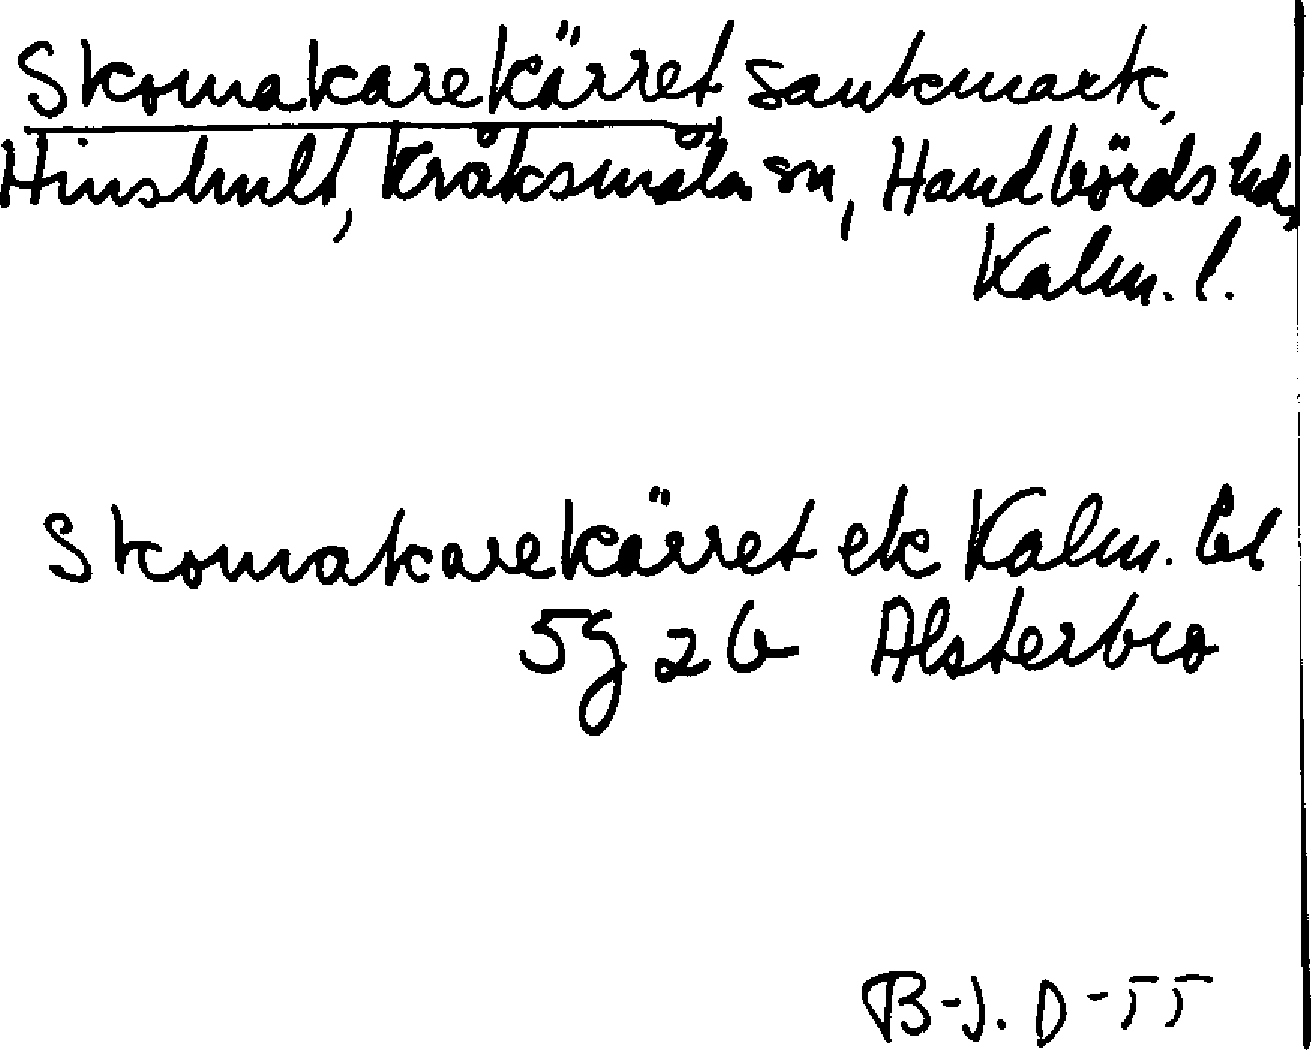 Skomakarekärret sankmark,
Hinshult, Kråksmåla sn, Handbörds hd,
Kalm. l.
Skomakarekärret ek Kalm. bl
5g 2b Alsterbro
B-J. D-55